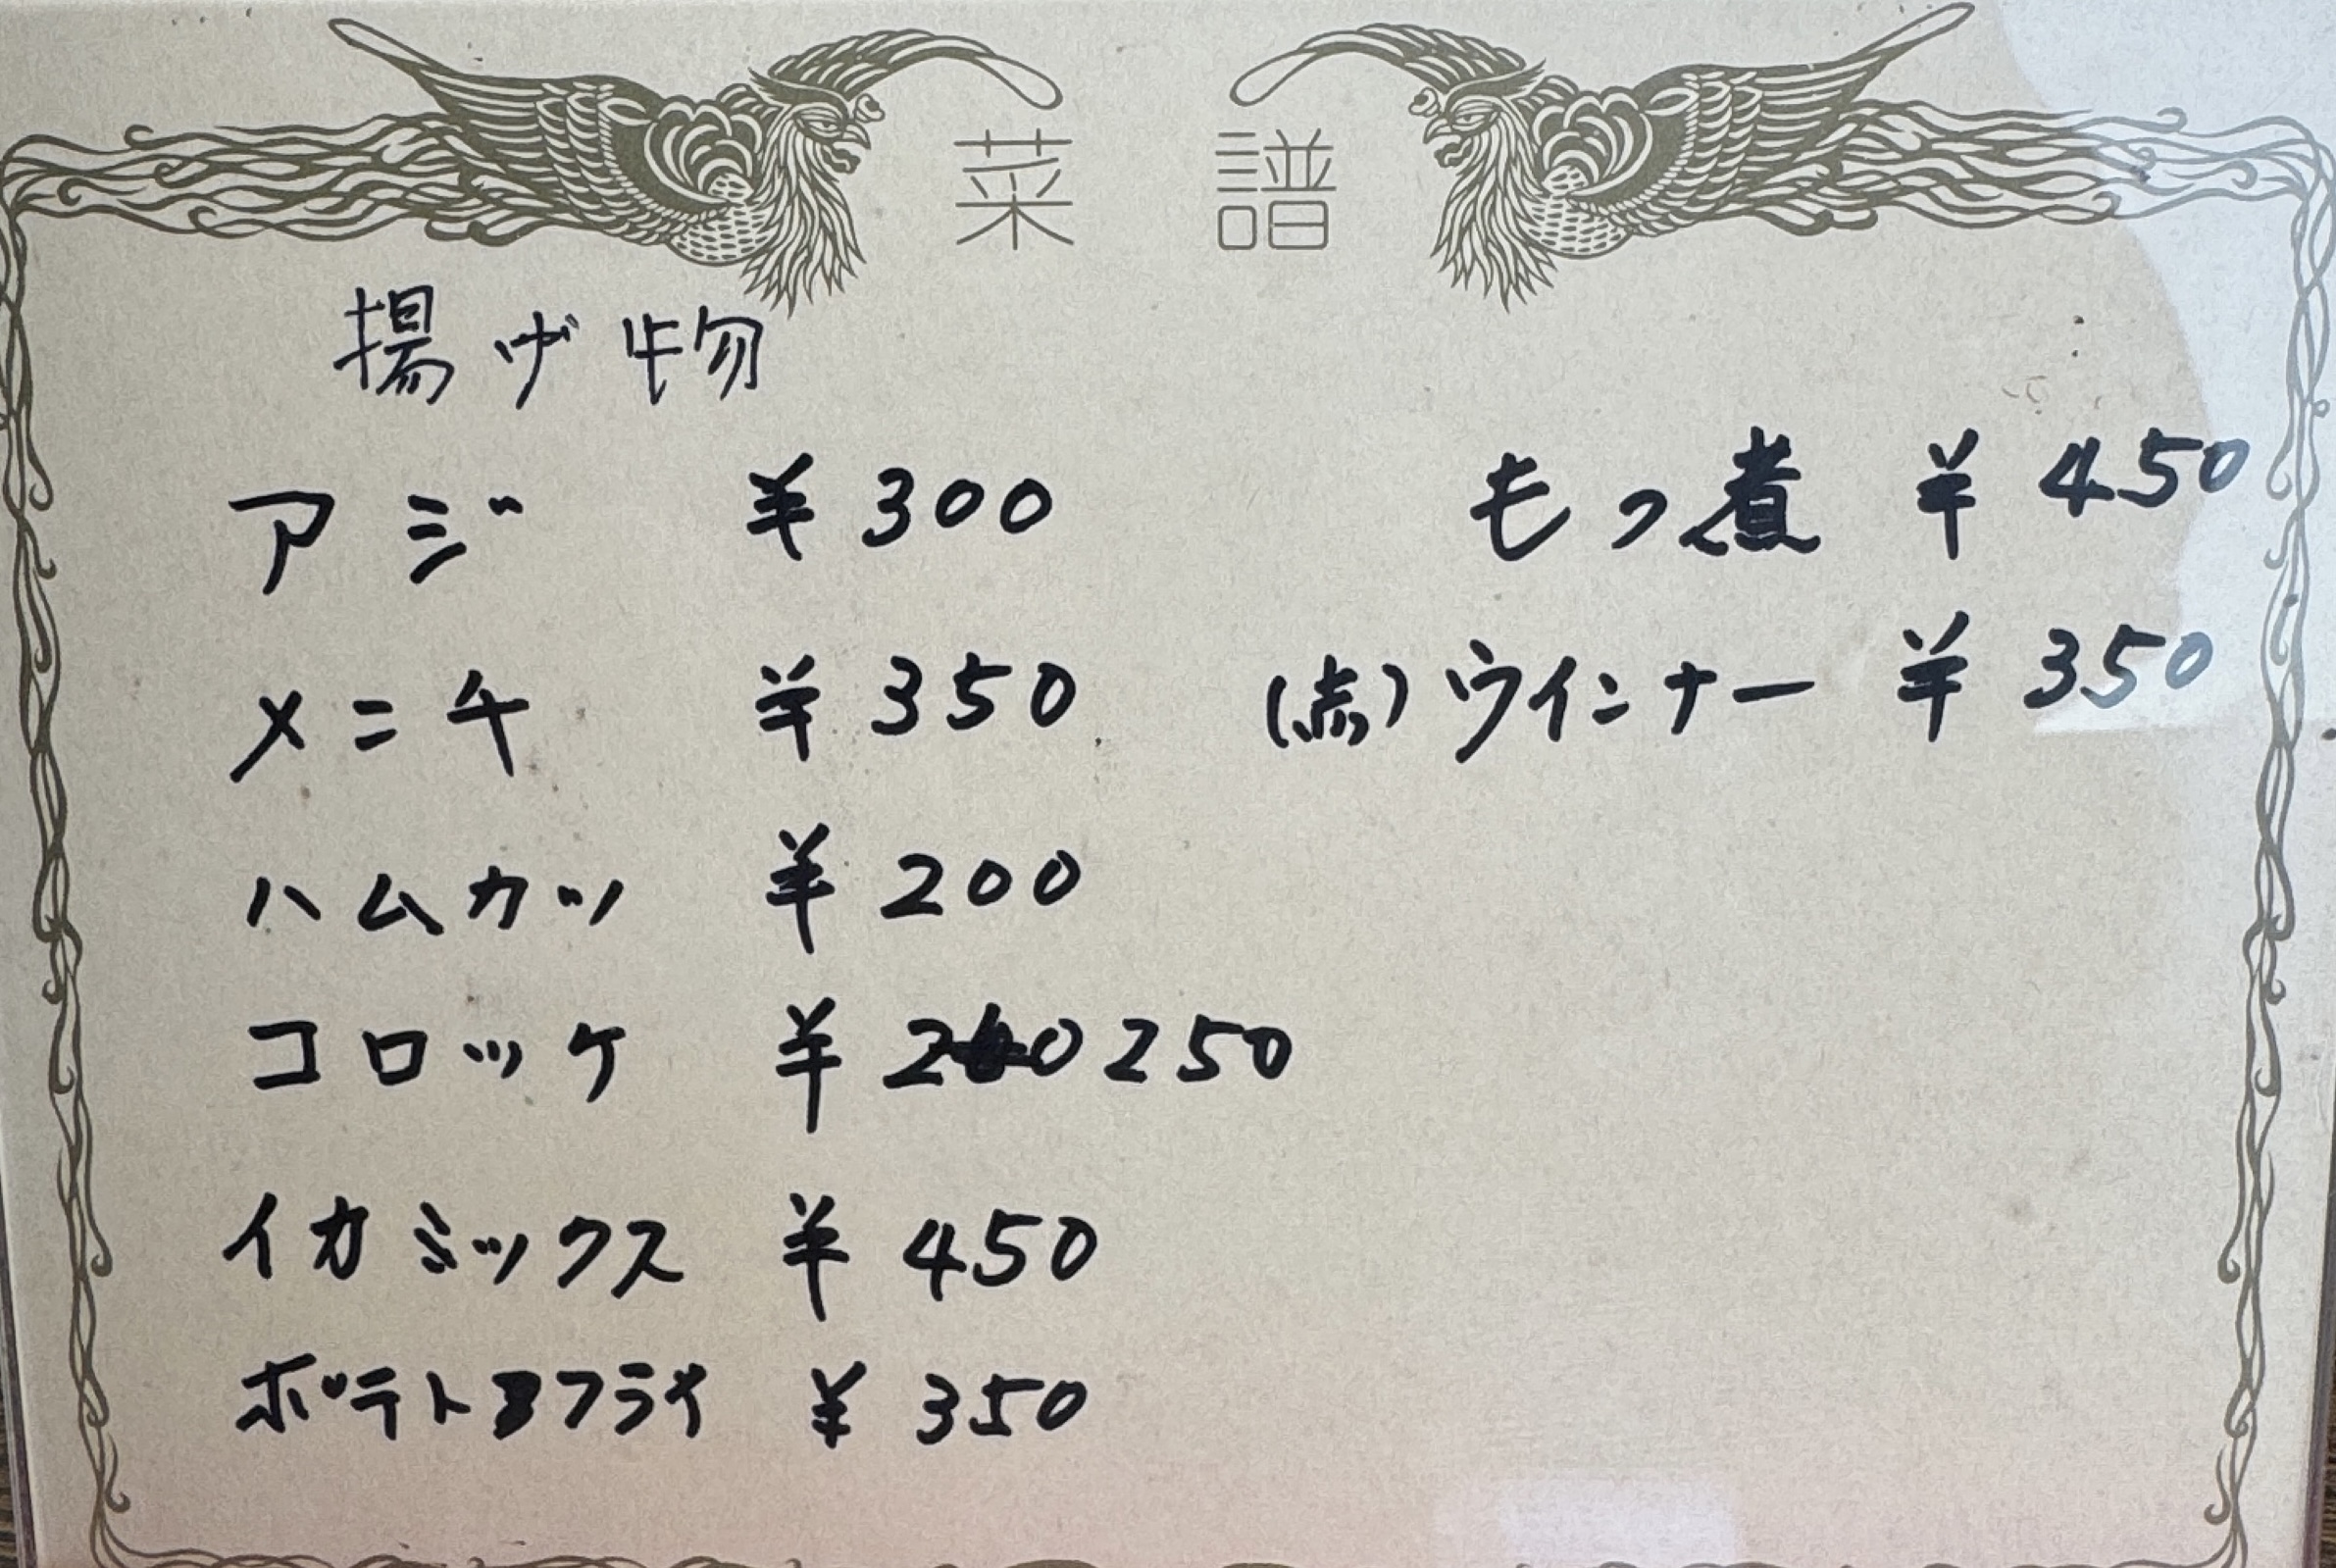 菜譜
揚げ物
アジ ¥300
メニチ ¥350
ハムカツ ¥200
コロッケ ¥ 250
イカミックス ¥450
ポテトフライ ¥350
もつ煮 ¥450
(赤)ウインナー ¥350